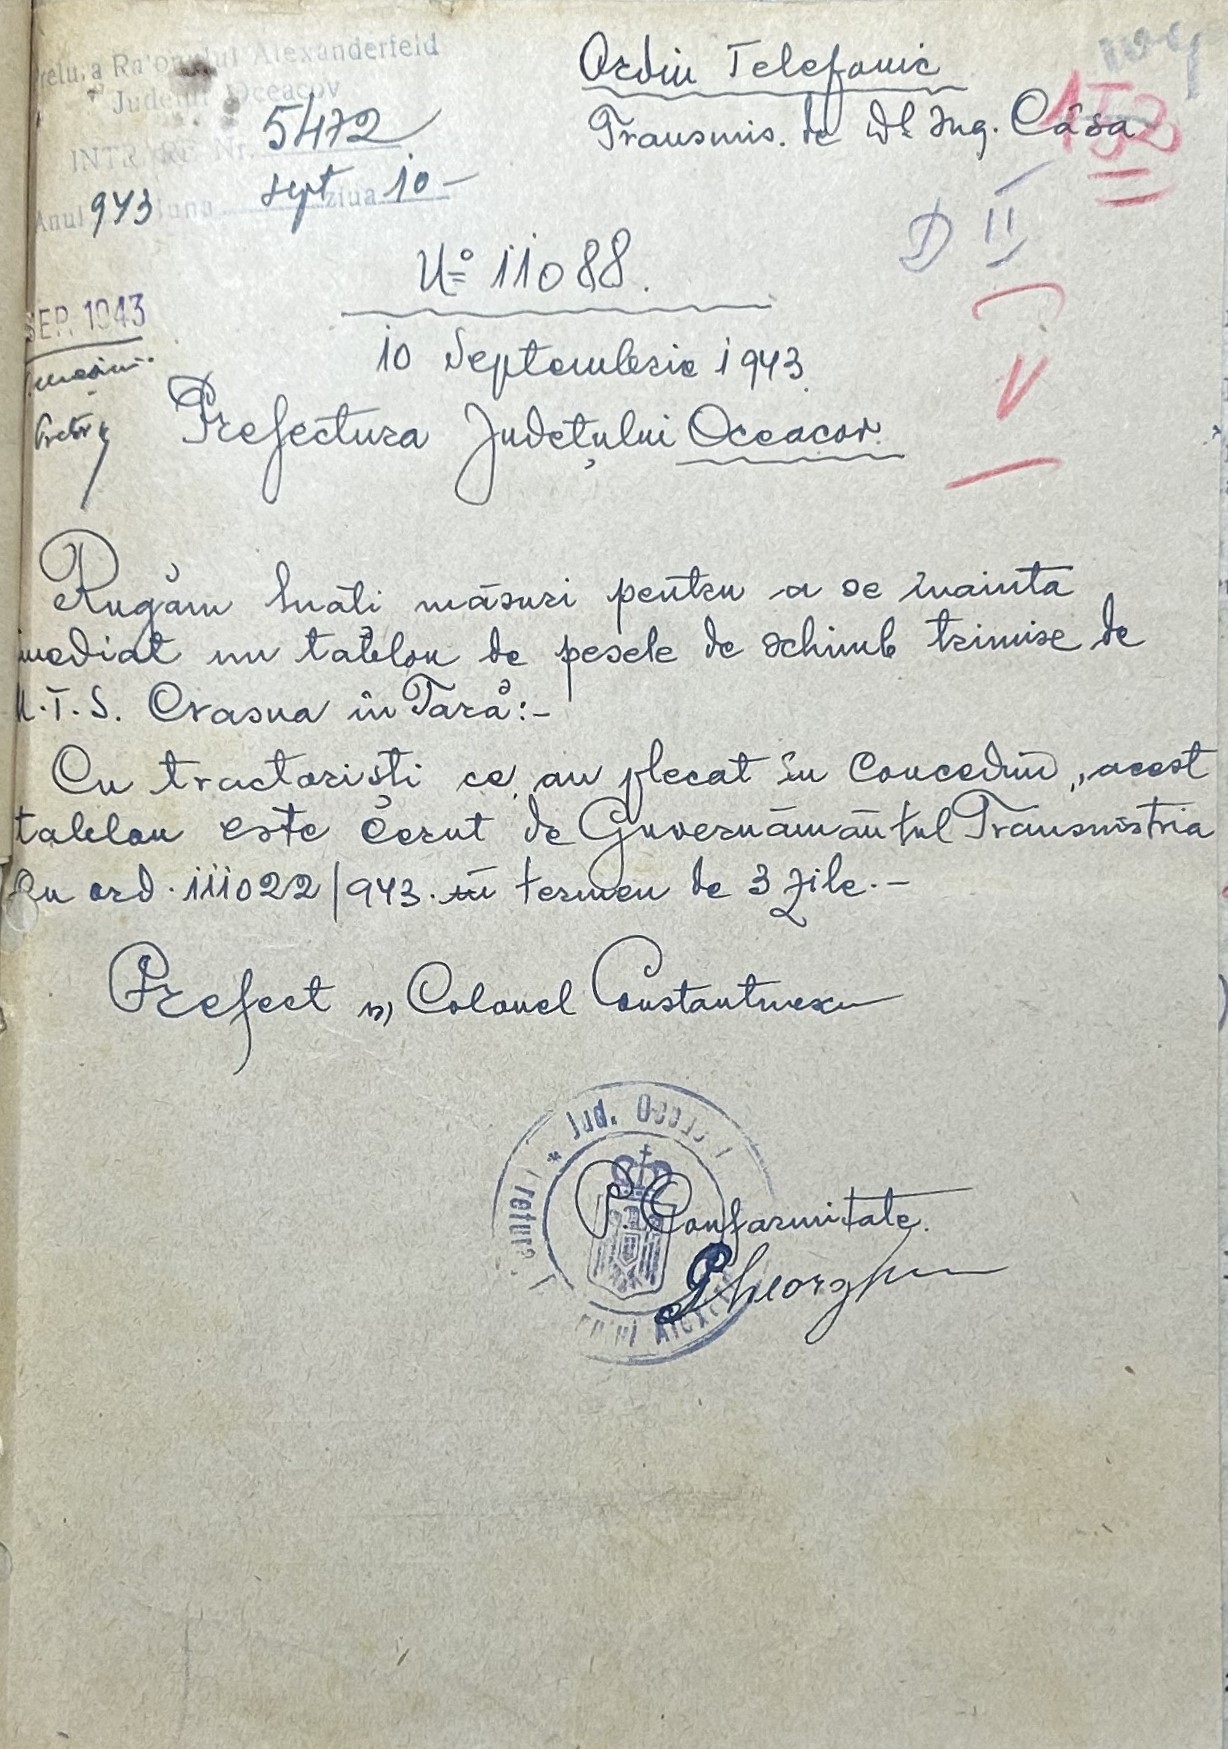 Pretura Raionului Alexanderfeld
Județul Oceacov
INTRARE Nr. 5472
Anul 943 luna sept ziua 10 -
Ordin Telefonic
Transmis. de Dl Ing. Casa
152
D II
V
N:o 11088.
10 Septembrie 1943
SEP. 1943
Pretor
Prefectura Județului Oceacov.
Rugăm luați măsuri pentru a se înainta
imediat un tablou de pesele de schimb trimise de
S.T.S. Crasna în Țară:-
Cu tractoriști ce au plecat în concediu, acest
tablou este cerut de Guvernământul Transnistria
cu ord. 111022/943. în termen de 3 zile.-
Prefect ss) Colonel Constantinescu
Jud. Oceacov
Pretura
P. Conformitate.
Gheorghe